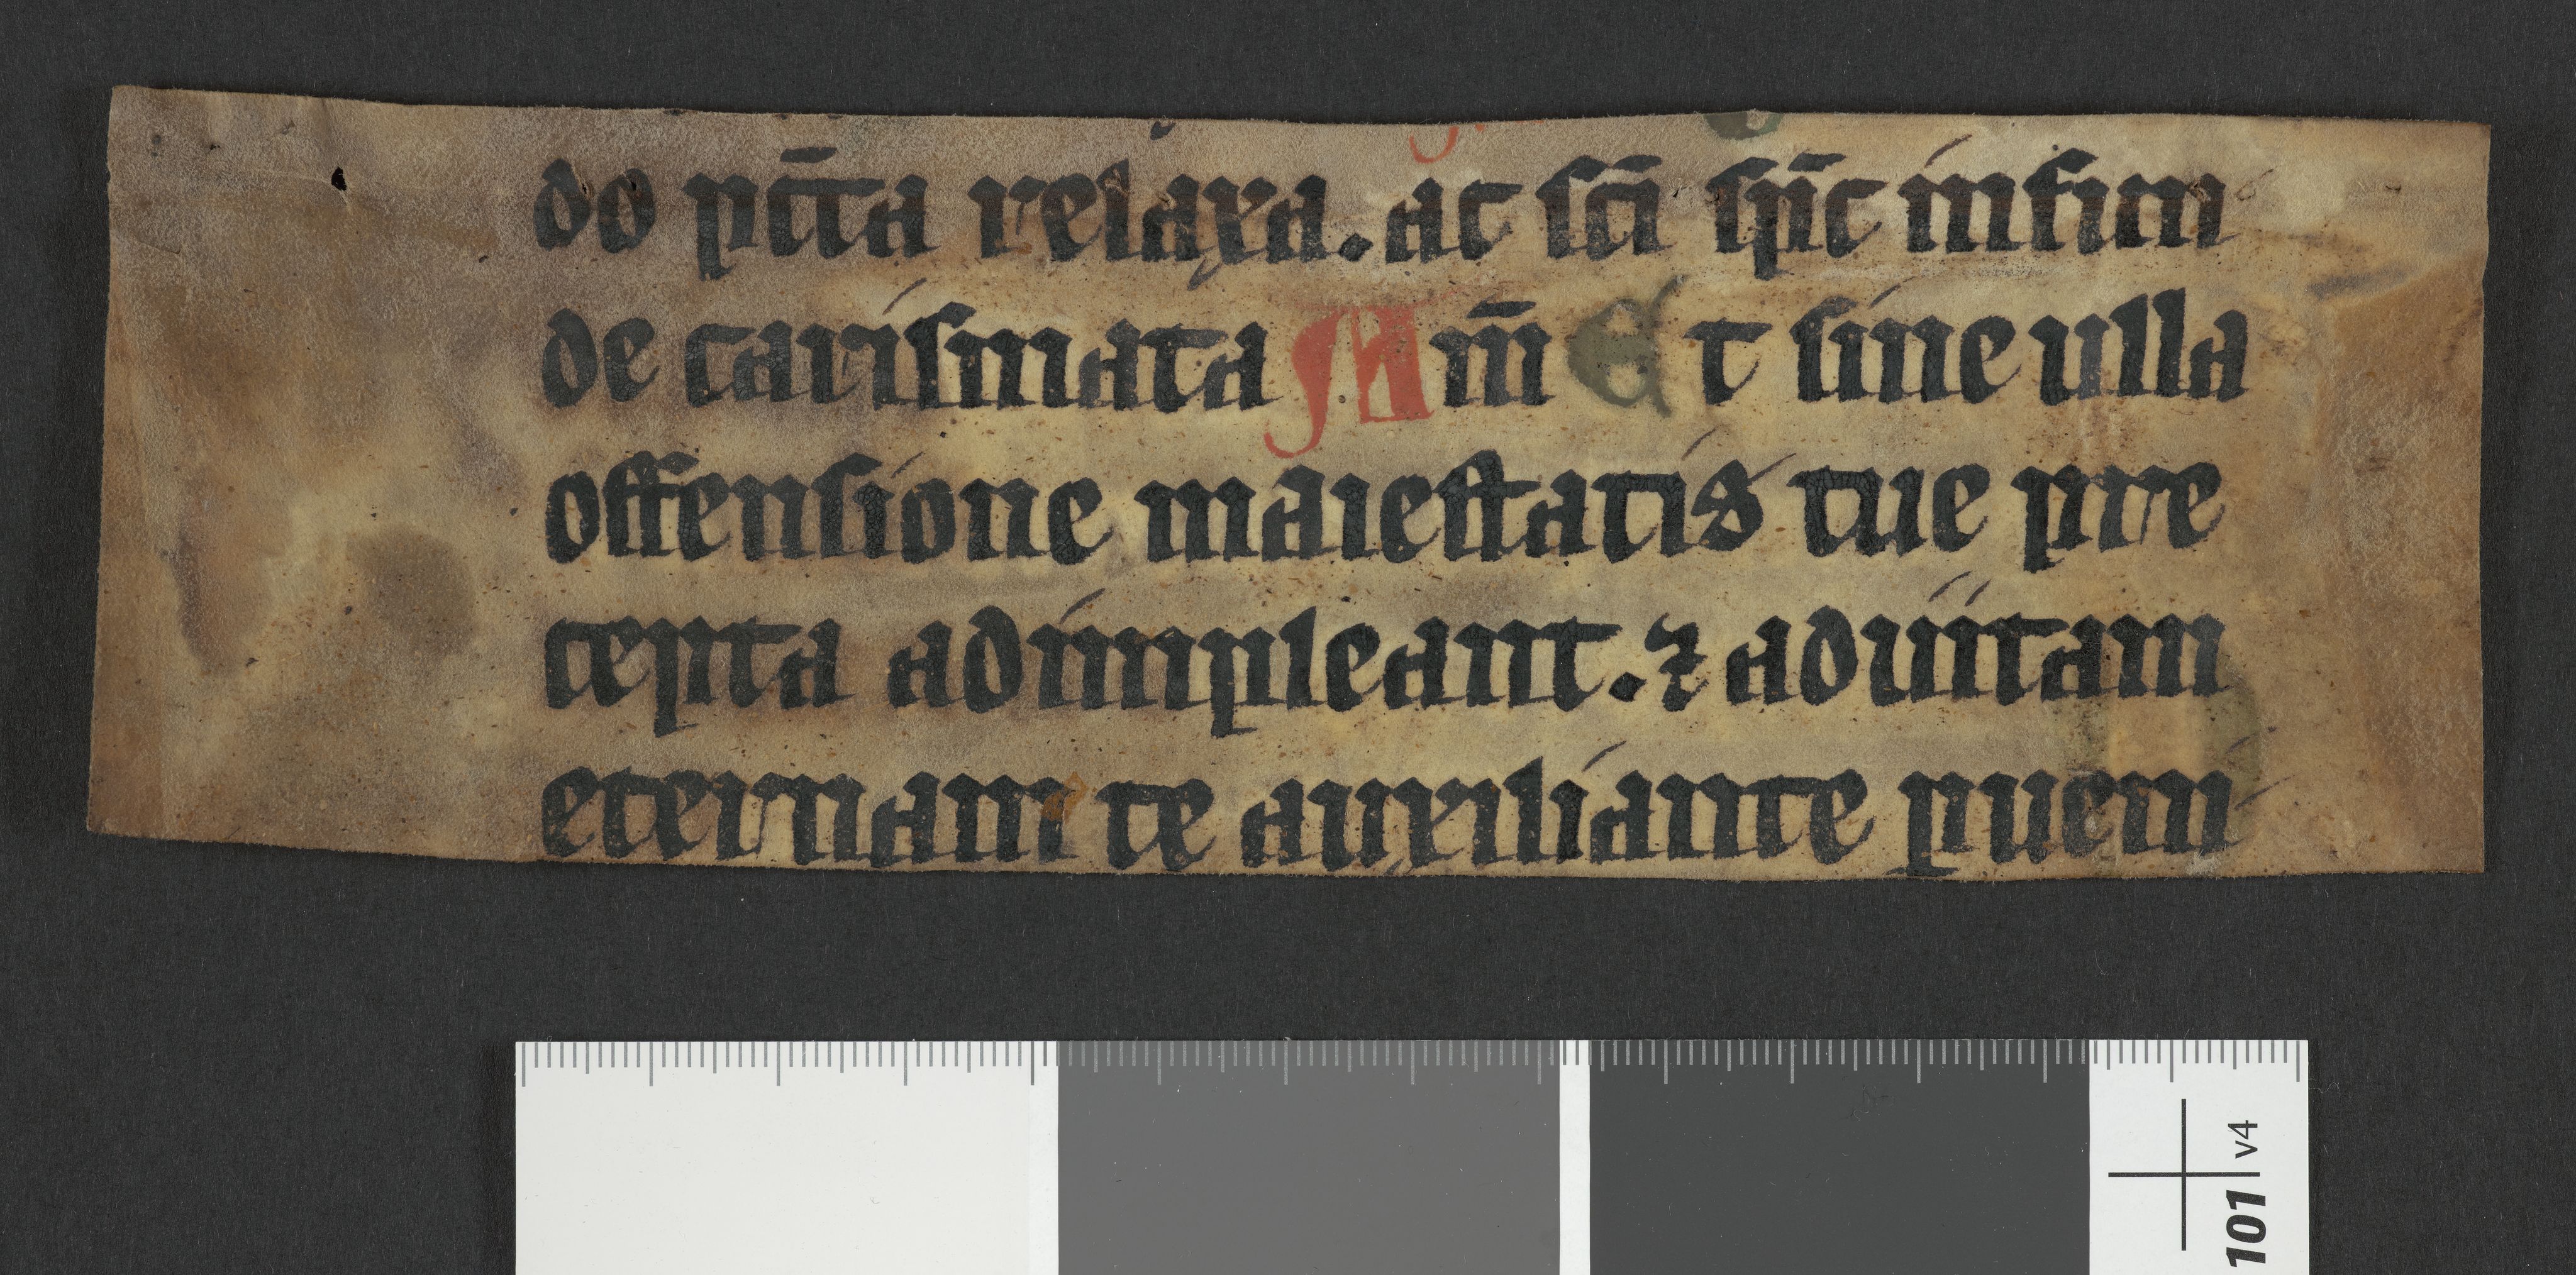 do pcc̄a relaxa. ac sc̄i sp̄c infun
de carismata Am̄ Et sine ulla
offensione maiestatis tue pre
cepta adimpleant. ⁊ ad uitam
eternam te auxiliante pueni
101 v4